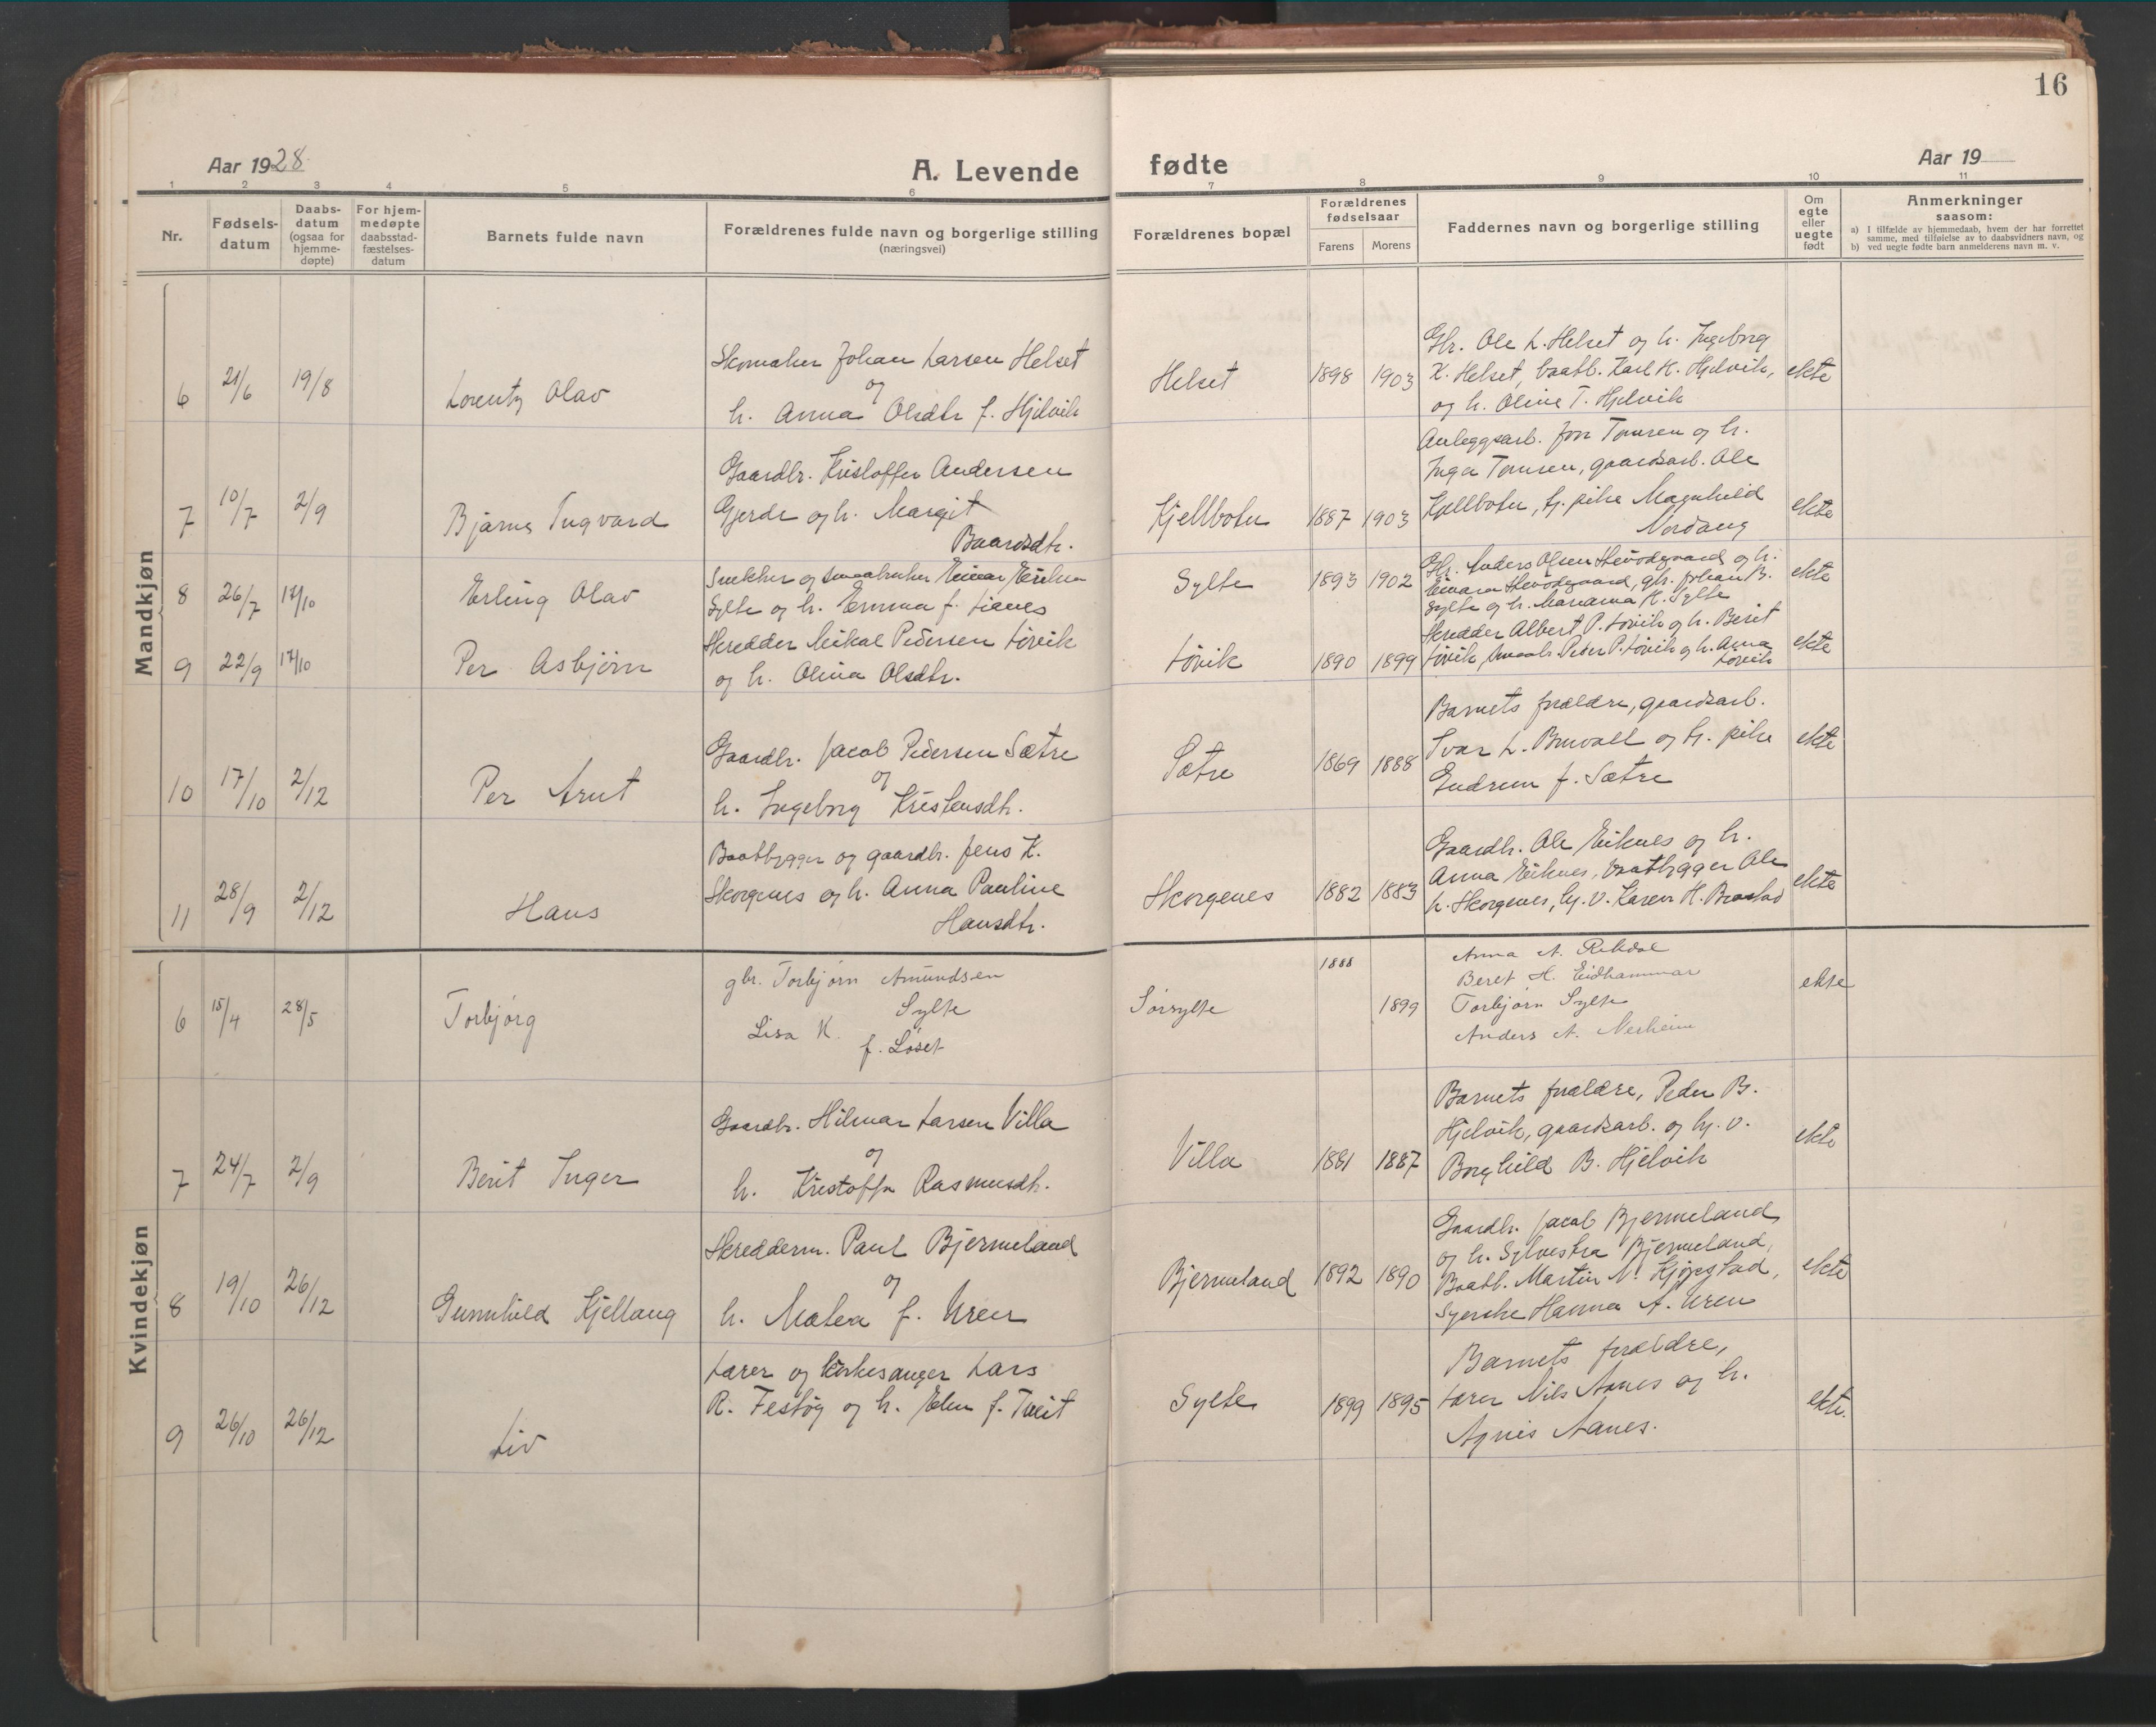 16
Aar 1928.
A. Levende
fødte
Aar 19
1 2 3 4 5 6 7 8 9 10 11
Nr.
Fødsels-
datum
Daabs-
datum
(ogsaa for
hjemme-
døpte)
For hjem-
medøpte
daabsstad-
fæstelses-
datum
Barnets fulde navn
Forældrenes fulde navn og borgerlige stilling
(næringsvei)
Forældrenes bopæl
Forældrenes
fødselsaar
Farens Morens
Faddernes navn og borgerlige stilling
Om
egte
eller
uegte
født
Anmerkninger
saasom:
a) I tilfælde av hjemmedaab, hvem der har forrettet
samme, med tilføielse av to daabsvidners navn, og
b) ved uegte fødte barn anmelderens navn m. v.
Mandkjøn
6 21/6 19/8 Lorentz Olav
Skomaker Johan Larsen Helset
og
h. Anna Olsdtr f. Hjelvik
Helset 1898 1903
Gbr. Ole L. Helset og h. Ingeborg
K. Helset, baatb. Karl K. Hjelvik,
og h. Oline T. Hjelvik
ekte
7 10/7 2/9 Bjarne Ingvard
Gaardbr. Kristoffer Andersen
Gjerde og h. Margit
Baardsdtr.
Kjellbotn 1887 1903
Anleggsarb. Jon Tomsen og h.
Inga Tomsen, gaardsarb. Ole
Kjellbotn, tj. pike Magnhild
Nordang
ekte
8 26/7 14/10 Erling Olav
Snekker og smaabruker Einar
Sylte og h. Emma f. Lianes
Sylte 1893 1902
Gbr. Anders Olsen og h.
gbr. Johan B.
Sylte og h. Marianna K. Sylte
ekte
9 22/9 14/10 Per Asbjörn
Skredder Mikal Pedersen Lövik
og h. Olina Olsdtr.
Lövik 1890 1899
Skredder Albert P. Lövik og h. Berit
Lövik, Peder P. Lövik og h. Anna
Lövik
ekte
10 17/10 2/12 Per Arnt
Gaardbr. Jacob Pedersen Sætre
og
h. Ingeborg Kristensdtr.
Sætre 1869 1888
Barnets forældre, gaardsarb.
Ivar L. Bruvoll og tj. pike
Gudrun J. Sætre
ekte
11 28/9 2/12 Hans
Baatbygger og gaardbr. Jens K.
Skorgenes og h. Anna Pauline
Hansdtr.
Skorgenes 1882 1883
Gaardbr. Ole Eiknes og h.
Anna Eiknes, baatbygger Ole
L. Skorgenes, hj. v. Karen H. Brastad
ekte
Kvindekjøn
6 15/4 28/5 Torbjørg
gbr. Torbjørn Amundsen
Sylte
Lisa K.
f. Løset
Sørsylte 1888 1899
Anna A. Rekdal
Beret H. Eidhammar
Torbjørn Sylte
Anders A. Nerheim
ekte
7 24/7 2/9 Berit Inger
Gaardbr. Hilmar Larsen Villa
og
h. Kristoffa Rasmusdtr.
Villa 1881 1887
Barnets forældre, Peder B.
Hjelvik, gaardsarb. og hj. v.
Borghild B. Hjelvik
ekte
8 19/10 26/12 Gunnhild Kjellaug
Skredderm. Paul Bjermeland
og
h. Matea f. Uren
Bjermeland 1892 1890
Gaardbr. Jacob Bjermeland
og h. Sylvestra Bjermeland,
Baatb. Martin N. Kjörstad,
Syerske Hanna A. Uren
ekte
9 26/10 26/12 Liv
Lærer og kirkesanger Lars
R. Festöy og h. Elen f. Tveit
Sylte 1899 1895
Barnets forældre,
Lærer Nils Aanes og h.
Agnes Aanes.
ekte.